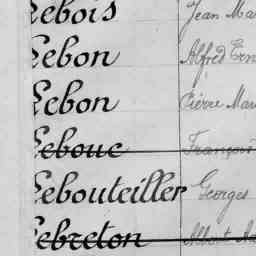 Lebois Jean Mar
Lebon Alfred Ern
Lebon Pierre Mar
Lebouc François
Lebouteiller Georges
Lebreton Albert